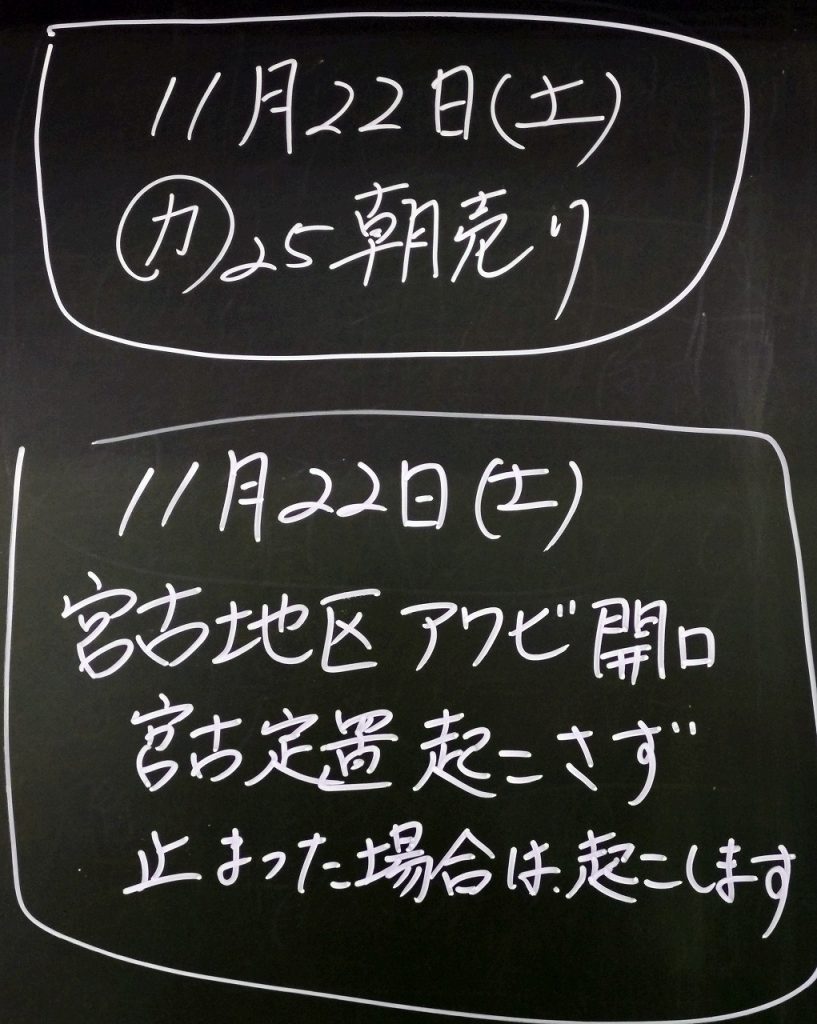 11月22日(土)
㋕25朝売り
11月22日(土)
宮古地区アワビ開口
宮古定置起こさず
止まった場合は、起こします